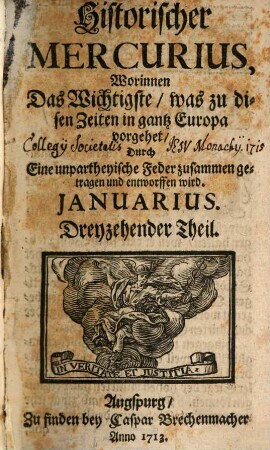 Historischer
MERCURIUS,
Worinnen
Das Wichtigste / was zu di-
sen Zeiten in gantz Europa
vorgehet /
Collegij Societatis Jesu Monachij 1715
Durch
Eine unpartheyische Feder zusammen ge-
tragen und entworffen wird.
JANUARIUS.
Dreyzehender Theil.
IN VERITATE ET IUSTITIA
Augspurg /
Zu finden bey Caspar Brechenmacher
Anno 1713.